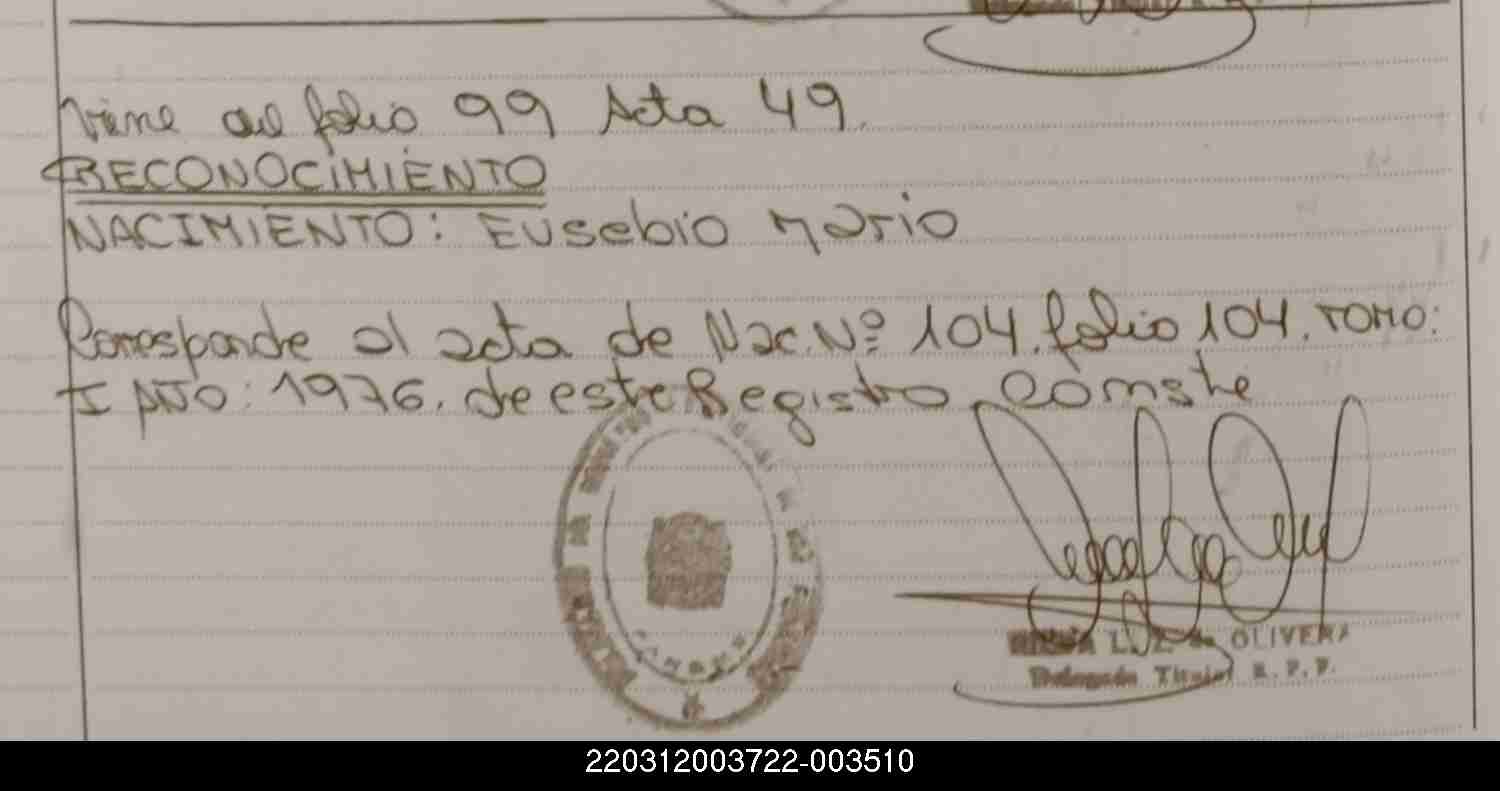 Viene del folio 99 Acta 49.
RECONOCIMIENTO
NACIMIENTO: Eusebio Mario
Corresponde al acta de Nac. Nº 104. folio 104. TOMO:
I AÑO: 1976. de este Registro. Conste
L. de OLIVERA
Delegada Titular R. P. P.
220312003722-003510